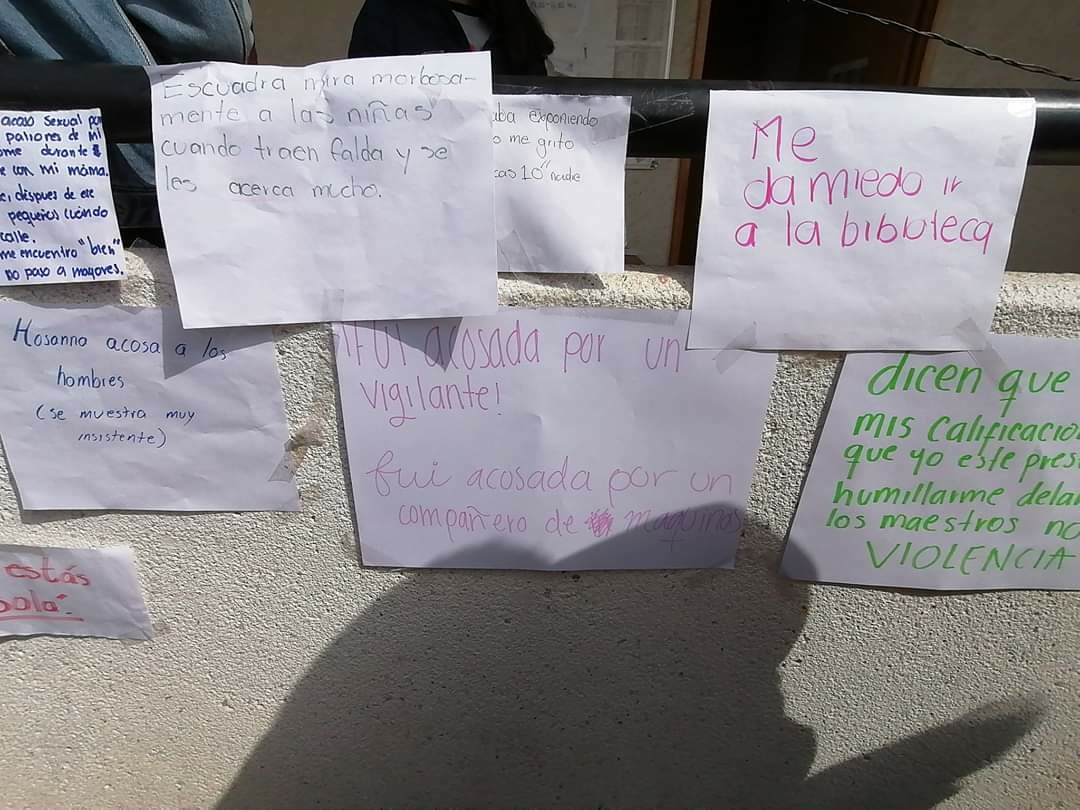 acoso sexual por
patiores de mi
ome durante
e con mi máma.
ci déspues de ese
pequeños cuándo
calle.
me encuentro "bien"
no paso a mayores.
Escuadra mira morbosa-
mente a las niñas
cuando traen falda y se
les acerca mucho.
aba exponiendo
o me grito
cas 10" nadie
Me
da miedo ir
a la biblioteca
Hosanna acosa a los
hombres
(se muestra muy
insistente)
¡Fui acosada por un
vigilante!
fui acosada por un
compañero de maquinas
dicen que
mis calificacio
que yo este pres
humillarme delan
los maestros no
VIOLENCIA
estás
sola".